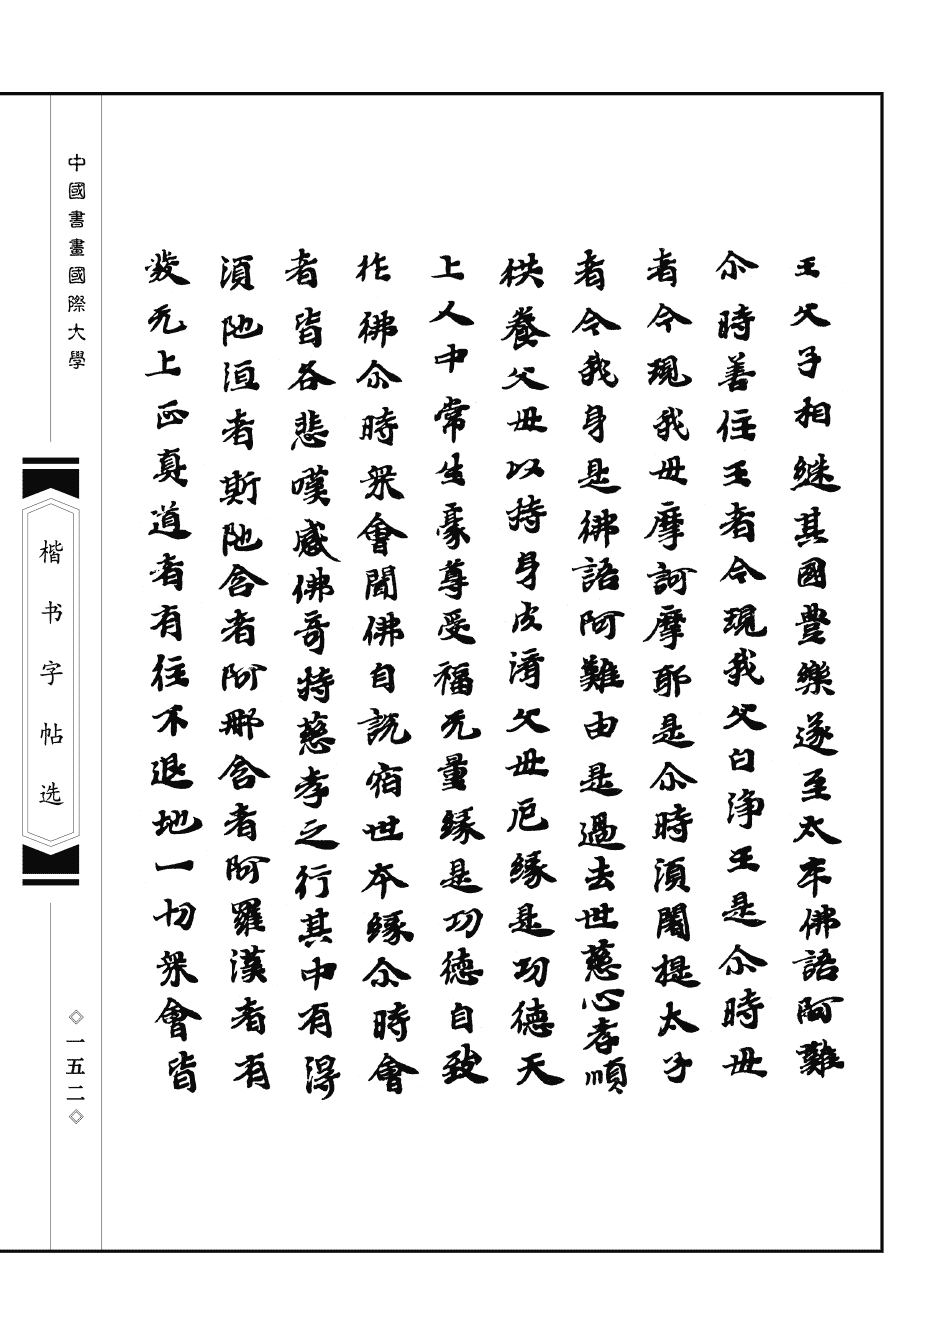 王父子相継其國豐樂遂至太牢佛語阿難
尒時善住王者今現我父白淨王是尒時毋
者今現我毋摩訶摩耶是尒時湏闍提太子
者今我身是佛語阿難由是過去世慈心孝順
供養父毋以持身皮濟父毋厄緣是功德天
上人中常生豪尊受福无量緣是功德自致
作佛尒時衆會聞佛自説宿世本緣尒時會
者皆各悲嘆感佛奇持慈孝之行其中有得
湏陁洹者斯陁含者阿那含者阿羅漢者有
發无上正真道者有住不退地一切衆會皆
中國書畫國際大學
楷书字帖选
一五二